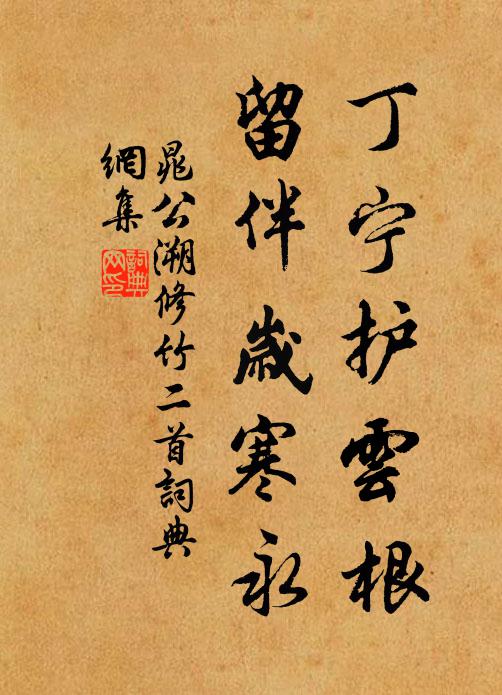 丁宁护雲根
留伴歲寒永
晁公溯修竹二首詞典
網集
詞典
网印